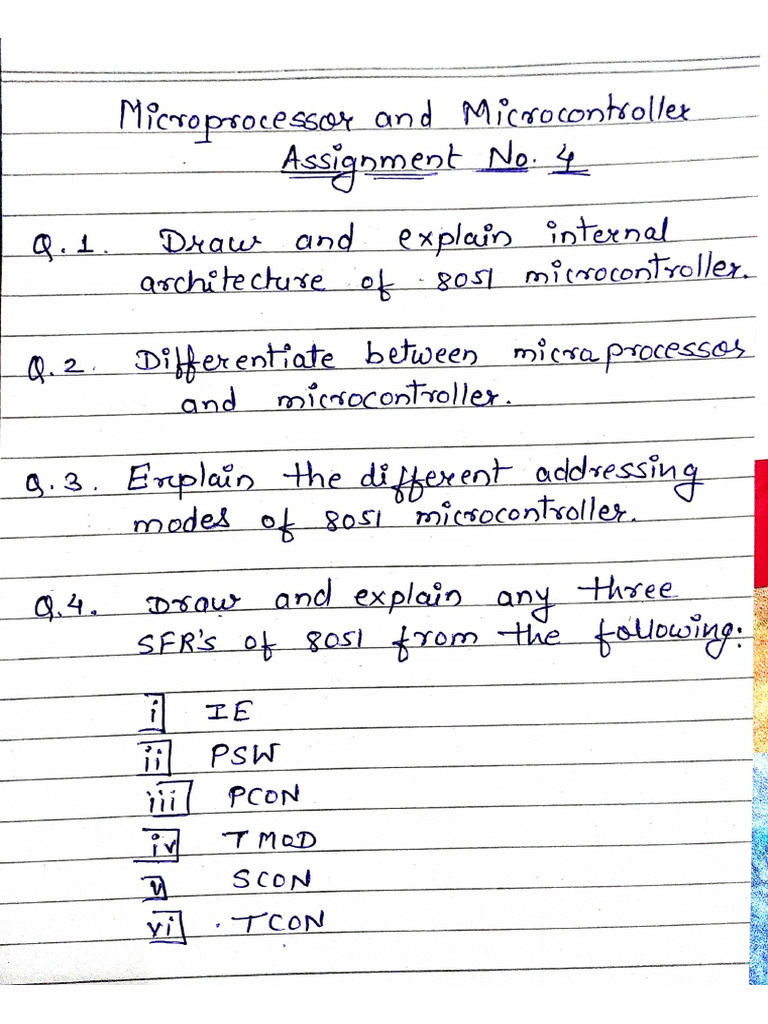 Microprocessor and Microcontroller
Assignment No. 4
Q.1. Draw and explain internal
architecture of 8051 microcontroller.
Q.2. Differentiate between microprocessor
and microcontroller.
Q.3. Explain the different addressing
modes of 8051 microcontroller.
Q.4. Draw and explain any three
SFR's of 8051 from the following:
i IE
ii PSW
iii PCON
iv TMOD
v SCON
vi TCON